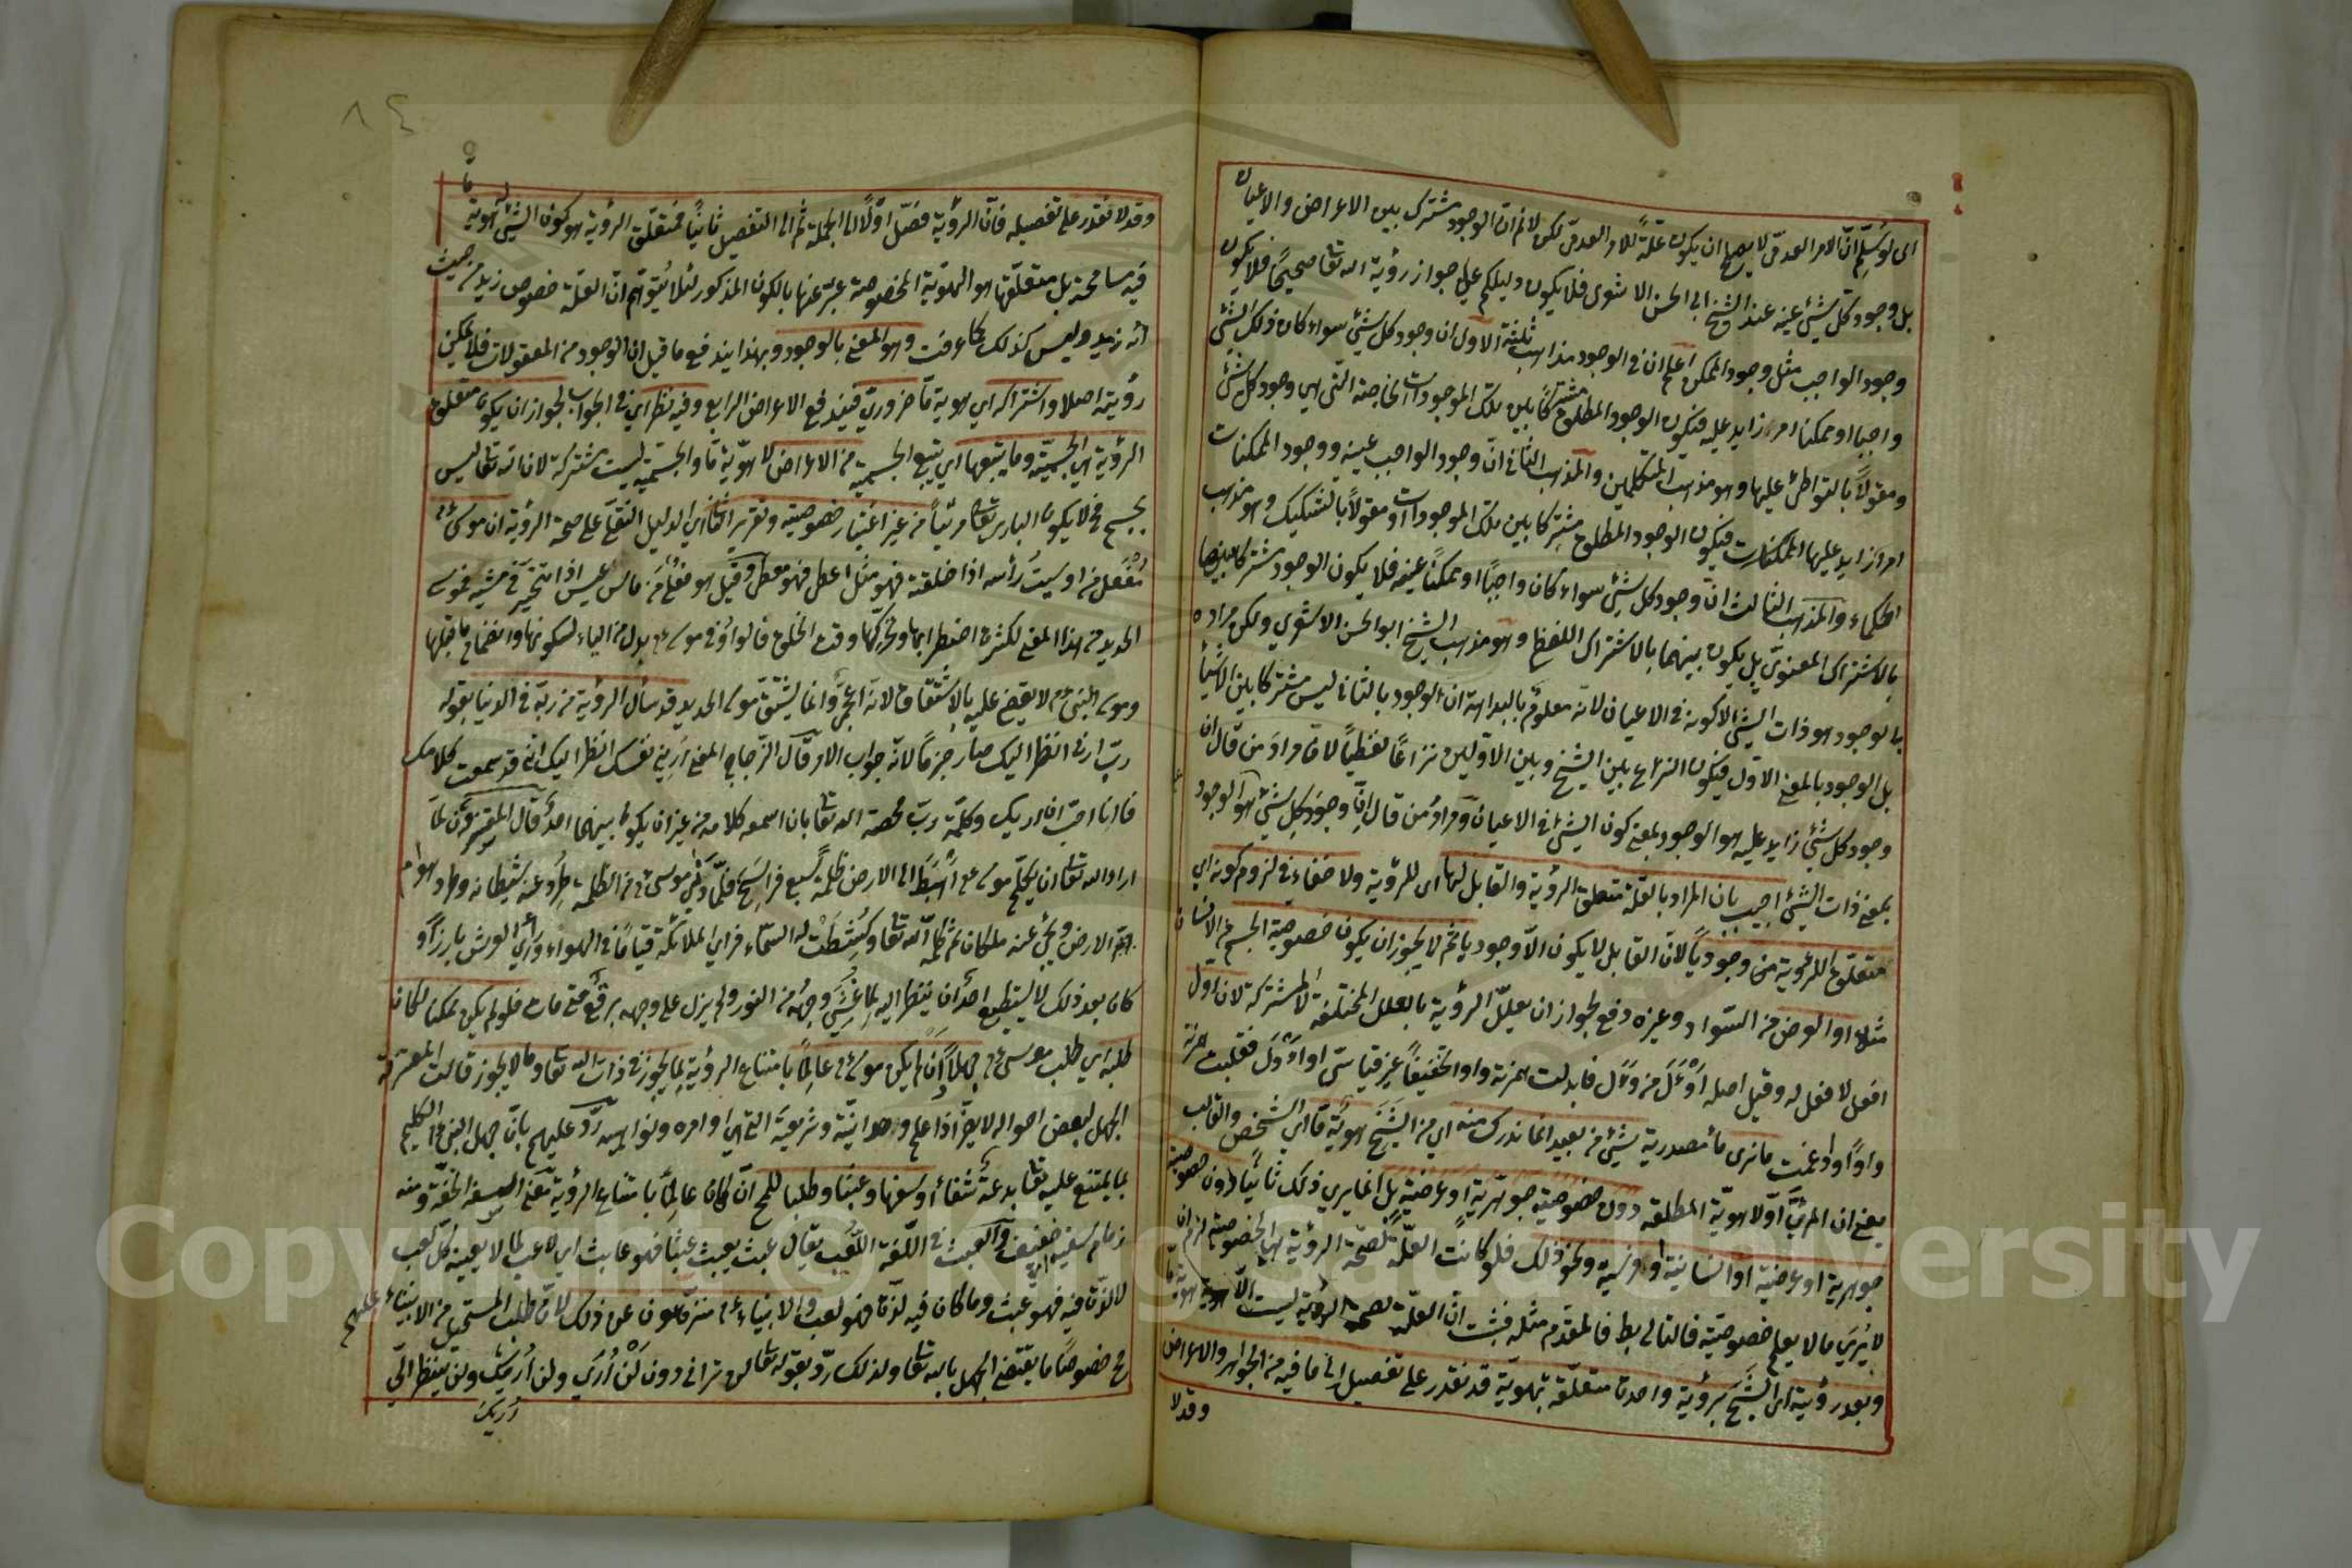 اى لو سُلّم انّ الامر العدمىّ لا يصلح ان يكون علّةً للامر العدمىّ لكن لا نم انّ الوجود مشترك بين الاعراض والاعيان
بل وجود كلّ شيئ عينه عند الشيخ ابى الحسن الاشعرى فلا يكون دليلكم على جواز رؤية الله تعا صحيحًا فلا يكون
وجود الواجب مثل وجود الممكن اعلم ان فى الوجود مذاهب ثلثة الاول ان وجود كل شيئ سواء كان ذلك الشئ
واجبا او ممكنا امر زايد عليه فيكون الوجود المطلق مشتركًا بين تلك الموجودات الخاصة التى هى وجود كل شئ
ومقولًا بالتواطئ عليها وهو مذهب المتكلمين والمذهب الثانى انّ وجود الواجب عينه ووجود الممكنات
امرًا زايد عليها الممكنات فيكون الوجود المطلق مشتركا بين تلك الموجودات ومقولًا بالتشكيك وهو مذهب
الحكماء والمذهب الثالث انّ وجود كل شيئ سواء كان واجبًا او ممكنًا عينه فلا يكون الوجود مشتركا بينها
بالاشتراك المعنوىّ بل يكون بينهما بالاشتراك اللفظى وهو مذهب الشيخ ابو الحسن الاشعرى ولكن مراده
بالوجود هو ذات الشيئ لا كونه فى الاعيان لانّه معلوم بالبداهة ان الوجود بالثانى ليس مشتركا بين الاشيأ
بل الوجود بالمعنى الاوّل فيكون النزاع بين الشيخ وبين الاوّلين نزاعًا لفظيًا لانّ مراد من قال ان
وجود كل شيئ زايد عليه هو الوجود بمعنى كون الشيئ فى الاعيان ومراد من قال انّ وجود كل شيئ هو الوجود
بمعنى ذات الشيئ اجيب بان المراد بالعلّة متعلق الرؤية والقابل لها اى للرؤية ولا خفاء فى لزوم كونه اى
متعلّق الرؤية من وجوديًا لانّ القابل لا يكون الّا وجوديا ثم لا يجوز ان يكون خصوصية الجسم من الانسان
مثلا او العرض من السّواد وغيره دفع لجواز ان يعلّل الرؤية بالعلل المختلفة لا المشتركة لان اول
افعل لا فعل له وقيل اصله اَوْئَل من وَأل فابدلت همزته واوا تخفيفًا غير قياسىّ او اَأْوَل فقلبت همزته
واوًا وادغمت ما نرى ما مصدرية شيئ من بعيد انما ندرك منه اى من الشَّبَح هويّةً مّا اى الشخص والقالب
يعنى ان المرئىّ اوّلا هويّة المطلقة دون خصوصية جوهريّة او عرضيّة بل انما يرى ذلك ثانيًا دون خصوصية
جوهرية او عرضية او انسانية او فرسية ونحو ذلك فلو كانت العلّة لصحّة الرؤية لها الخصوصية لزم ان
لا يُرَى ما لا يعلم خصوصيّته فالتالى بط فالمقدّم مثله فثبت انّ العلّة لصحة الرؤية ليست الّا هويّة مّا
وبعد رؤية اى الشَّبَح برؤية واحدة متعلّقة بهويّة قد نقدر على تفصيل الى ما فيه من الجواهر والاعراض
وقد لا
وقد لا نقدر على تفصيله فانّ الرؤية فضّل اوّلًا الى الجملة ثم الى التفصيل ثانيًا فمتعلّق الرؤية هو كون الشيئ له هوية مّا
فيه مسامحة بل متعلّقها هو الهويّة المخصوصة عبّر عنها بالكون المذكور لئلا يُتوهم انّ العلّة خصوص زيد من حيث
انه زيد وليس كذلك كما عرفت وهو المعنى بالوجود وبهذا يندفع ما قيل ان الوجود من المعقولات فلا يمكن
رؤيته اصلا واشتراكه اى هوية مّا ضرورىّ فيندفع الاعراض الرابع وفيه نظر اى فى الجواب لجواز ان يكون متعلق
الرؤية هى الجسميّة وما يتبعها اى يتبع الجسمية من الاعراض لا هويّة مّا والجسميّة ليست مشتركة لان الله تعا ليس
بجسم فح لا يكون البارى تعا مرئيّاً من غير اعتبار خصوصيته وتقرير الثانى اى الدليل النقلىّ على صحة الرؤية ان موسى ءم
مُفْعَل من اوسيتُ رأسه اذا حلقته فهو مثل اعطى فهو معطى وقيل هو فعلى من ماس يميس اذا تبختر فى مشيه فموسى
الحديد من هذا المعنى لكثرة اضطرابها وتحركها وقت الحلق فالواو فى موسى بدل من الياء لسكونها وانضمام ما قبلها
وموسى النبىّ ءم لا يقضى عليه بالاشتقاق لانه اعجمىّ وانما يشتقّ موسى الحديد قد سأل الرؤية من ربّه فى الدنيا بقوله
ربّ ارنى انظر اليك صار جزمًا لانّه جواب الامر قال الزّجاج المعنى اَرِنى نفسك انظر اليك انى قد سمعت كلامك
فانا احبّ ان اريك وكلمة ربّ مخصة الله تعا بان اسمعه كلامه من غير ان يكون بينهما احدٌ قال المفسرون لمّا
اراد الله تعا ان يكلّم موسى ءم اهبط الى الارض ظلمة سبع فراسخ فلمّا دنى موسى ءم من الظلمة طُرِد عنه شيطانه وطرد هوام
الارض ونُحّى عنه ملكان ثم كلّمه الله تعا وكُشِطَتْ له السّماء فراى الملائكة قيامًا فى الهواء وراى العرش بارزًا و
كان بعد ذلك لا يستطيع احدٌ ان ينظر اليه لما غُشّى وجهُه من النور ولم يزل على وجهه برقع حتى مات فلو لم يكن ممكنا لكان
طلبه اى طلب موسى ءم جهلًا ان لم يكن موسى ءم عالمًا بامتناع الرؤية بما يجوز فى ذات الله تعا وما لا يجوز قالت المعتزلة
الجهل ببعض احواله لا يضرّ اذا علم وحدانيّته وشريعته التى هى اوامره ونواهيه ردّ عليهم بانّ جهل النبىّ الكليم
بما يمتنع عليه تعا بدعة شنعاء او سفها وعبثًا وطلبا للمح ان كان عالمًا بامتناع الرؤية معنى السفه الخفّة ومنه
زمام سفيه خفيف والعبث فى اللّغة اللّعب يقال عبث يعبث عبثًا فهو عابث اى لاعب لما لا يعنيه كل لعب
لا لذّة فيه فهو عبث وما كان فيه لذّة فهو لعب والانبياء ءم منزّهون عن ذلك لانّ طلب المستحيل من الانبياء عليهم
مح خصوصًا ما يقتضى الجهل بالله تعا ولذلك ردّ بقوله تعا لن ترانى دون لَنْ اُرَى ولن اُرِيَك ولن ينظر الىّ